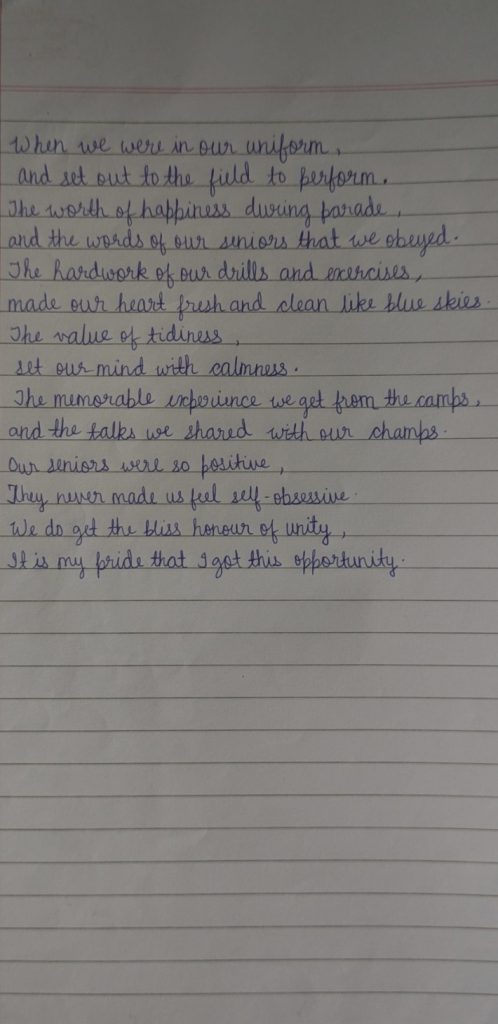 When we were in our uniform,
and set out to the field to perform.
The worth of happiness during parade,
and the words of our seniors that we obeyed.
The hardwork of our drills and exercises,
made our heart fresh and clean like blue skies.
The value of tidiness,
set our mind with calmness.
The memorable experience we get from the camps,
and the talks we shared with our champs.
Our seniors were so positive,
They never made us feel self-obsessive.
We do get the bliss honour of unity,
It is my pride that I got this opportunity.